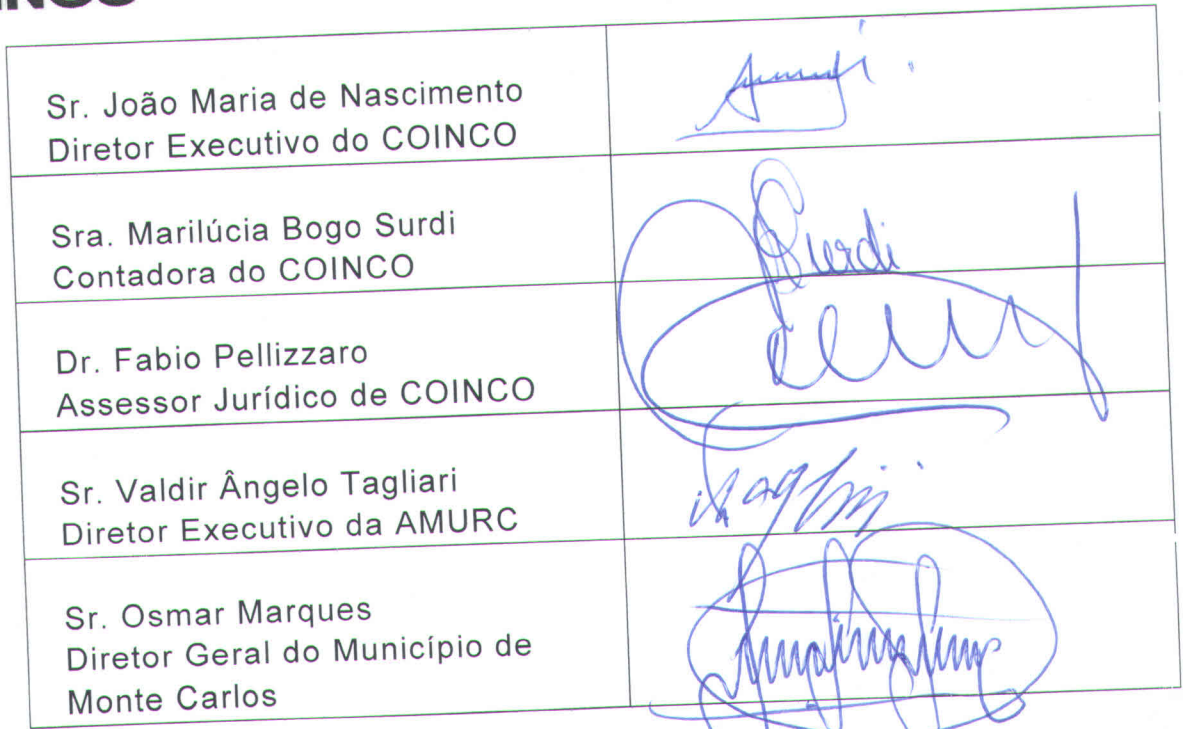 Sr. João Maria de Nascimento
Diretor Executivo do COINCO
Sra. Marilúcia Bogo Surdi
Contadora do COINCO
Surdi
Dr. Fabio Pellizzaro
Assessor Jurídico de COINCO
Sr. Valdir Ângelo Tagliari
Diretor Executivo da AMURC
Sr. Osmar Marques
Diretor Geral do Município de
Monte Carlos